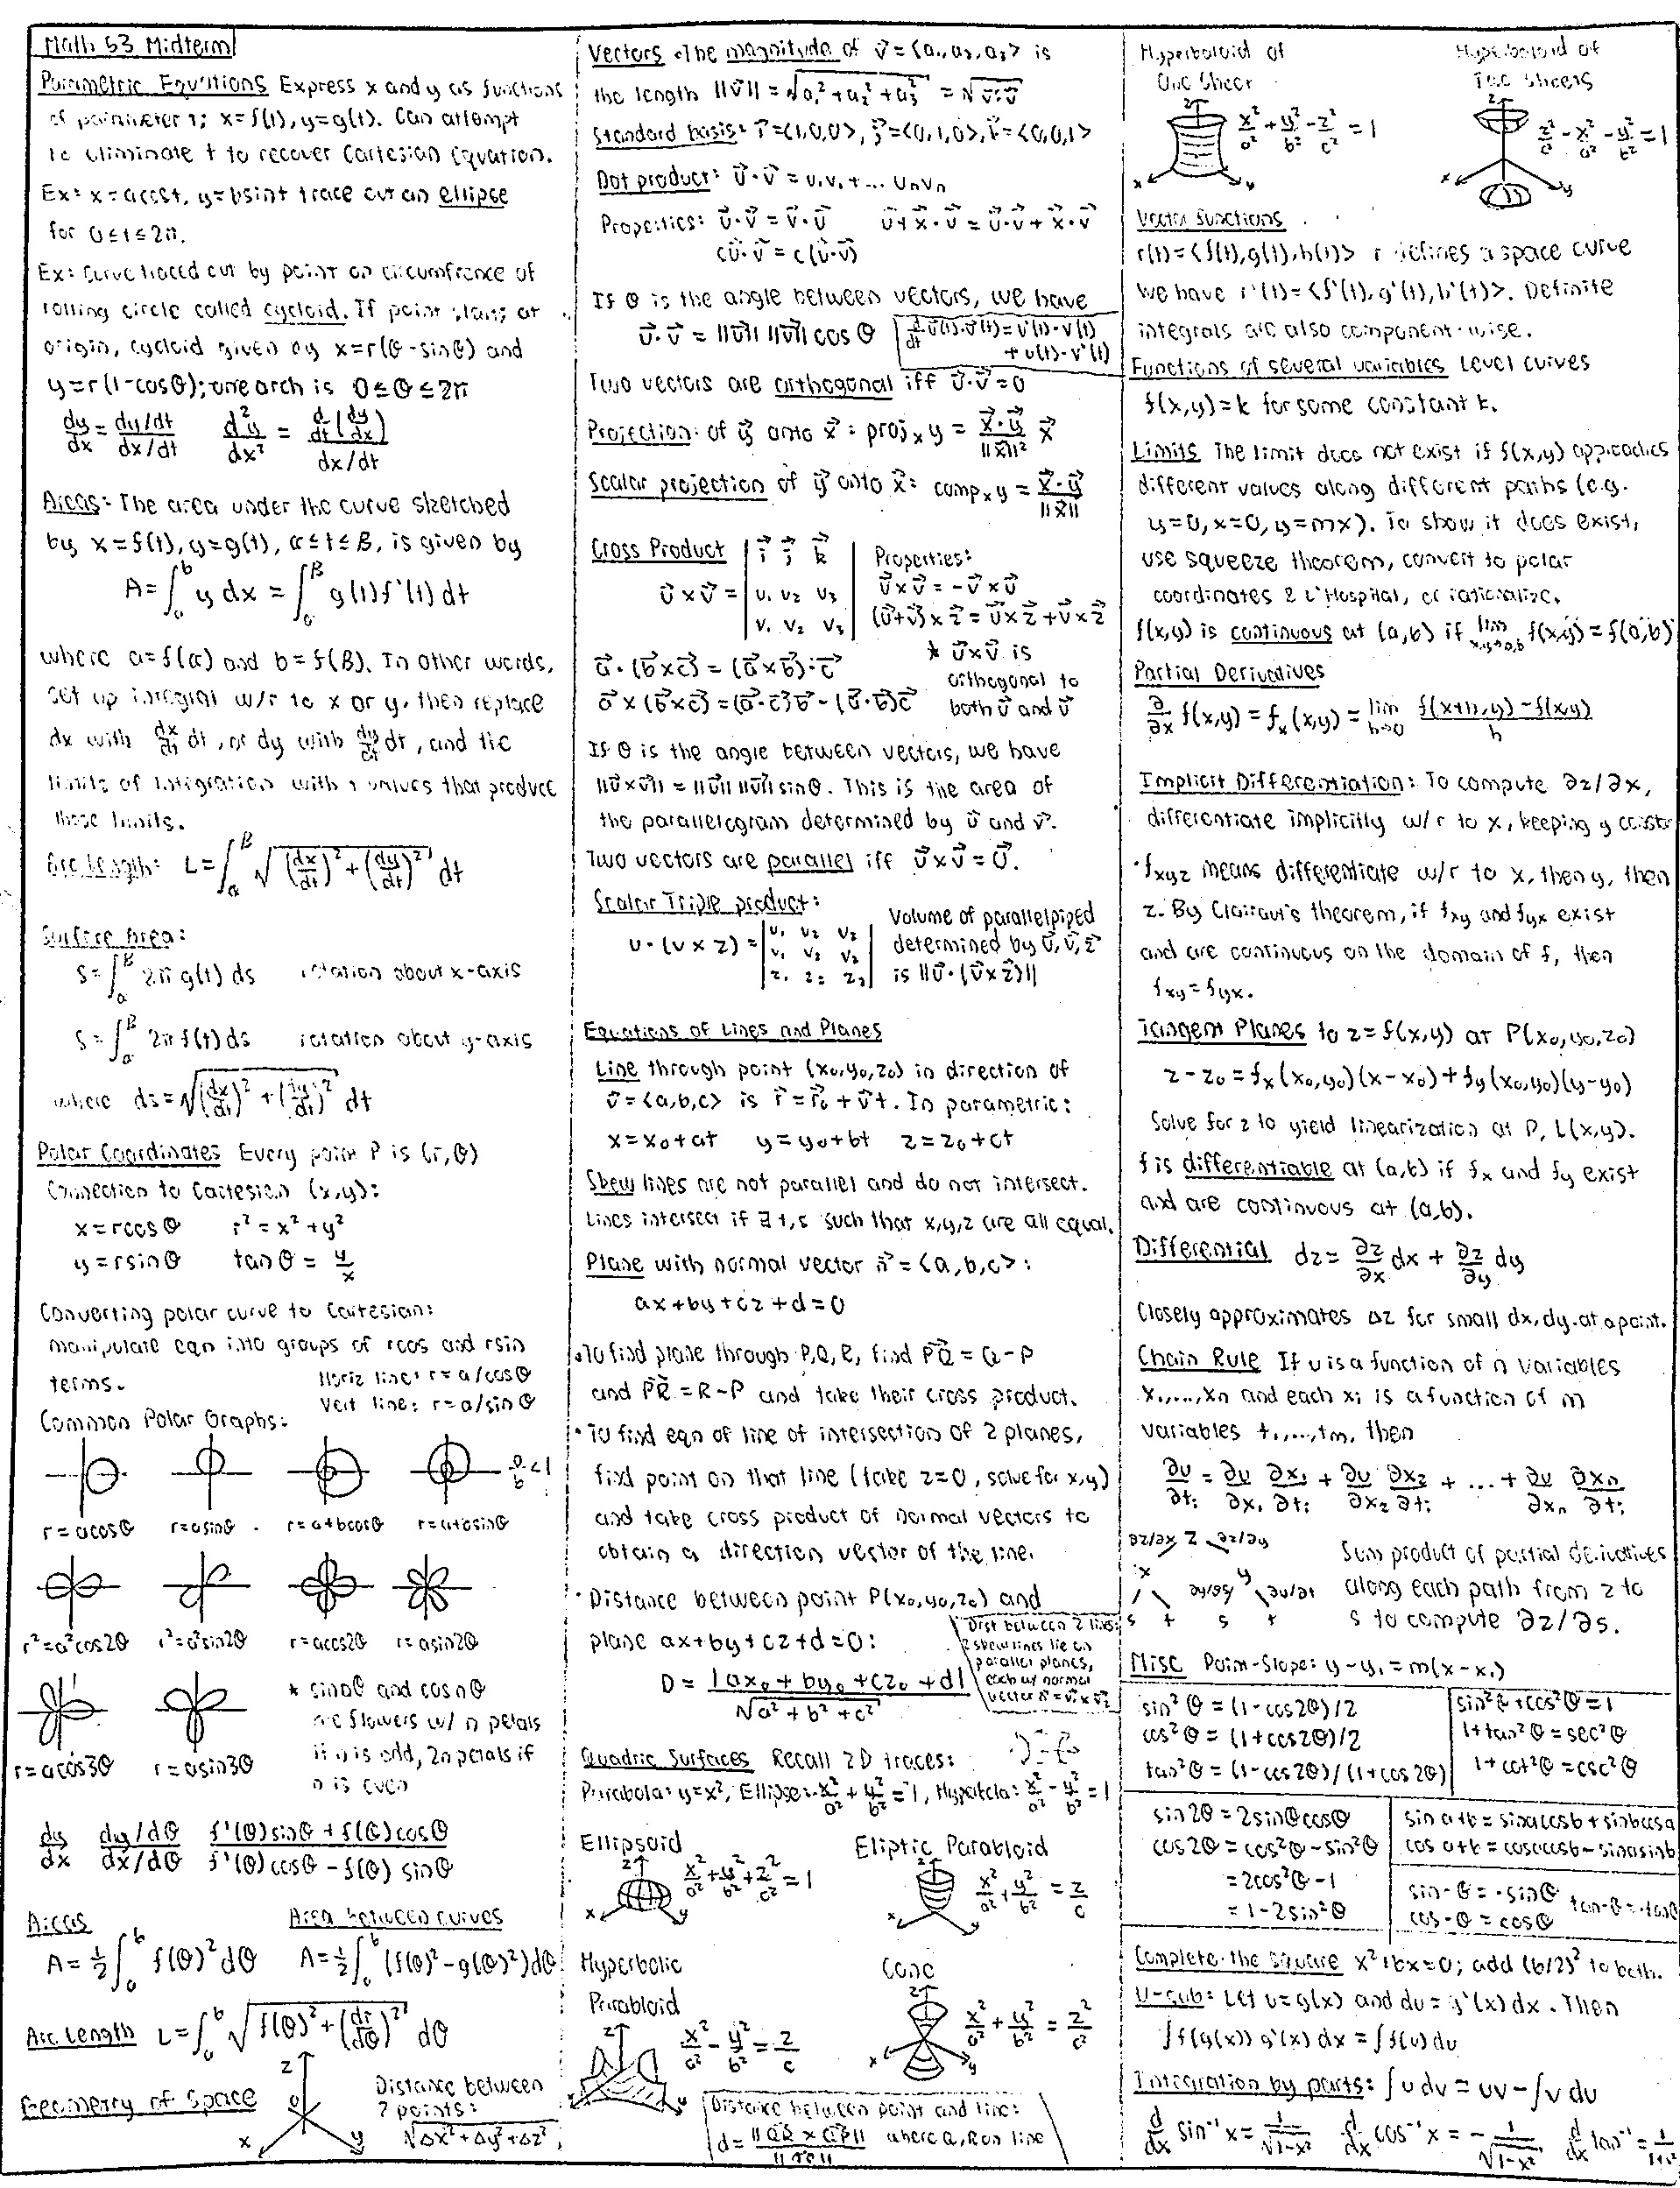 Math 53 Midterm
Parametric Equations Express x and y as functions
of parameter t; x=f(t), y=g(t). Can attempt
to eliminate t to recover Cartesian Equation.
Ex: x=acost, y=bsint trace out an ellipse
for 0≤t≤2π.
Ex: curve traced out by point on circumfrence of
rolling circle called cycloid. If point starts at
origin, cycloid given by x=r(θ-sinθ) and
y=r(1-cosθ); one arch is 0≤θ≤2π
dy/dx = (dy/dt)/(dx/dt) d²y/dx² = (d/dt(dy/dx))/(dx/dt)
Areas: The area under the curve sketched
by x=f(t), y=g(t), α≤t≤β, is given by
A=∫_a^b y dx = ∫_α^β g(t)f'(t) dt
where a=f(α) and b=f(β). In other words,
set up integral w/r to x or y, then replace
dx with dx/dt dt, or dy with dy/dt dt, and the
limits of integration with t values that produce
those limits.
Arc Length: L=∫_α^β √((dx/dt)²+(dy/dt)²) dt
Surface Area:
S=∫_α^β 2π g(t) ds rotation about x-axis
S=∫_α^β 2π f(t) ds rotation about y-axis
where ds=√((dx/dt)²+(dy/dt)²) dt
Polar Coordinates Every point P is (r,θ)
Connection to Cartesian (x,y):
x=rcosθ r²=x²+y²
y=rsinθ tanθ = y/x
Converting polar curve to Cartesian:
manipulate eqn into groups of rcos and rsin
terms.
Horiz line: r=a/cosθ
Vert line: r=a/sinθ
Common Polar Graphs:
a/b<1
r=acosθ r=asinθ r=a+bcosθ r=a+bsinθ
r²=a²cos2θ r²=a²sin2θ r=acos2θ r=asin2θ
* sinnθ and cosnθ
are flowers w/ n petals
if n is odd, 2n petals if
n is even
r=acos3θ r=asin3θ
dy/dx (dy/dθ)/(dx/dθ) (f'(θ)sinθ+f(θ)cosθ)/(f'(θ)cosθ-f(θ)sinθ)
Areas Area between curves
A=½∫_a^b f(θ)² dθ A=½∫_a^b (f(θ)²-g(θ)²)dθ
Arc Length L=∫_a^b √(f(θ)²+(dr/dθ)²) dθ
Geometry of Space
z
O
x y
Distance between
2 points:
√(Δx²+Δy²+Δz²)
Vectors • The magnitude of v⃗=<a₁,a₂,a₃> is
the length ||v⃗||=√(a₁²+a₂²+a₃²) = √(v⃗·v⃗)
Standard basis: i⃗=<1,0,0>, j⃗=<0,1,0>, k⃗=<0,0,1>
Dot product: u⃗·v⃗ = u₁v₁+... uₙvₙ
Properties: u⃗·v⃗ = v⃗·u⃗ u⃗+x⃗·v⃗ = u⃗·v⃗+x⃗·v⃗
cu⃗·v⃗ = c(u⃗·v⃗)
If θ is the angle between vectors, we have
u⃗·v⃗ = ||u⃗|| ||v⃗|| cosθ
d/dt u(t)·v(t)=u'(t)·v(t)
+u(t)·v'(t)
Two vectors are orthogonal iff u⃗·v⃗=0
Projection: of y⃗ onto x⃗: projₓy = (x⃗·y⃗/||x⃗||²) x⃗
Scalar projection of y⃗ onto x⃗: compₓy = x⃗·y⃗/||x⃗||
Cross Product
u⃗×v⃗ = | i⃗ j⃗ k⃗ |
| u₁ u₂ u₃ |
| v₁ v₂ v₃ |
Properties:
u⃗×v⃗=-v⃗×u⃗
(u⃗+v⃗)×z⃗=u⃗×z⃗+v⃗×z⃗
* u⃗×v⃗ is
orthogonal to
both u⃗ and v⃗
a⃗·(b⃗×c⃗) = (a⃗×b⃗)·c⃗
a⃗×(b⃗×c⃗)=(a⃗·c⃗)b⃗-(a⃗·b⃗)c⃗
If θ is the angle between vectors, we have
||u⃗×v⃗|| = ||u⃗|| ||v⃗|| sinθ. This is the area of
the parallelogram determined by u⃗ and v⃗.
Two vectors are parallel iff u⃗×v⃗=0⃗.
Scalar Triple product:
u·(v×z)=| u₁ u₂ u₃ |
| v₁ v₂ v₃ |
| z₁ z₂ z₃ |
Volume of parallelpiped
determined by u⃗,v⃗,z⃗
is ||u⃗·(v⃗×z⃗)||
Equations of Lines and Planes
Line through point (x₀,y₀,z₀) in direction of
v⃗=<a,b,c> is r⃗=r⃗₀+v⃗t. In parametric:
x=x₀+at y=y₀+bt z=z₀+ct
Skew lines are not parallel and do not intersect.
Lines intersect if ∃ t,s such that x,y,z are all equal.
Plane with normal vector n⃗=<a,b,c>:
ax+by+cz+d=0
• To find plane through P,Q,R, find PQ⃗ = Q-P
and PR⃗=R-P and take their cross product.
• To find eqn of line of intersection of 2 planes,
find point on that line (take z=0, solve for x,y)
and take cross product of normal vectors to
obtain a direction vector of the line.
• Distance between point P(x₀,y₀,z₀) and
plane ax+by+cz+d=0:
D = |ax₀+by₀+cz₀+d|/√(a²+b²+c²)
Dist between 2 lines:
2 skew lines lie on
parallel planes,
each w/ normal
vector n⃗=v⃗₁×v⃗₂
Quadric Surfaces Recall 2D traces:
Parabola: y=x², Ellipse: x²/a²+y²/b²=1, Hyperbola: x²/a²-y²/b²=1
Ellipsoid
z x y
x²/a²+y²/b²+z²/c²=1
Eliptic Parabloid
z x y
x²/a²+y²/b²=z/c
Hyperbolic
Parabloid
z x y
x²/a²-y²/b²=z/c
Cone
z x y
x²/a²+y²/b²=z²/c²
Distance between point and line:
d=||QR⃗×QP⃗||/||QR⃗|| where Q,R on line
Hyperboloid of
One Sheet
z x y
x²/a²+y²/b²-z²/c²=1
Hyperboloid of
Two Sheets
z x y
z²/c²-x²/a²-y²/b²=1
Vector functions
r(t)=<f(t),g(t),h(t)> r defines a space curve
We have r'(t)=<f'(t),g'(t),h'(t)>. Definite
integrals are also component-wise.
Functions of several variables Level curves
f(x,y)=k for some constant k.
Limits The limit does not exist if f(x,y) approaches
different values along different paths (e.g.
y=0, x=0, y=mx). To show it does exist,
use squeeze theorem, convert to polar
coordinates & L'Hospital, or rationalize.
f(x,y) is continuous at (a,b) if lim x,y→a,b f(x,y)=f(a,b)
Partial Derivatives
∂/∂x f(x,y)=fₓ(x,y)=lim h→0 (f(x+h,y)-f(x,y))/h
Implicit Differentiation: To compute ∂z/∂x,
differentiate implicitly w/r to x, keeping y const
• f_xyz means differentiate w/r to x, then y, then
z. By Clairaut's theorem, if f_xy and f_yx exist
and are continuous on the domain of f, then
f_xy=f_yx.
Tangent Planes to z=f(x,y) at P(x₀,y₀,z₀)
z-z₀=f_x(x₀,y₀)(x-x₀)+f_y(x₀,y₀)(y-y₀)
Solve for z to yield linearization at P, L(x,y).
f is differentiable at (a,b) if f_x and f_y exist
and are continuous at (a,b).
Differential dz=∂z/∂x dx + ∂z/∂y dy
Closely approximates Δz for small dx, dy. at a point.
Chain Rule If u is a function of n variables
x₁,...,xₙ and each xᵢ is a function of m
variables t₁,...,tₘ, then
∂u/∂tᵢ = ∂u/∂x₁ ∂x₁/∂tᵢ + ∂u/∂x₂ ∂x₂/∂tᵢ + ... + ∂u/∂xₙ ∂xₙ/∂tᵢ
∂z/∂x z ∂z/∂y
x y
∂y/∂s ∂y/∂t
s t s t
Sum product of partial derivatives
along each path from z to
s to compute ∂z/∂s.
Misc Point-Slope: y-y₁=m(x-x₁)
sin²θ=(1-cos2θ)/2
cos²θ=(1+cos2θ)/2
tan²θ=(1-cos2θ)/(1+cos2θ)
sin²θ+cos²θ=1
1+tan²θ=sec²θ
1+cot²θ=csc²θ
sin2θ=2sinθcosθ
cos2θ=cos²θ-sin²θ
=2cos²θ-1
=1-2sin²θ
sin a+b=sinacosb+sinbcosa
cos a+b=cosacosb-sinasinb
sin-θ=-sinθ tan-θ=-tanθ
cos-θ=cosθ
Complete the square x²+bx=0; add (b/2)² to both.
U-sub: Let u=g(x) and du=g'(x)dx. Then
∫f(g(x))g'(x)dx=∫f(u)du
Integration by parts: ∫u dv=uv-∫v du
d/dx sin⁻¹x=1/√(1-x²) d/dx cos⁻¹x=-1/√(1-x²) d/dx tan⁻¹=1/(1+x²)